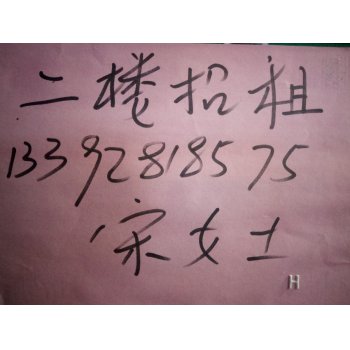 二楼招租
13392818575
宋女士
H